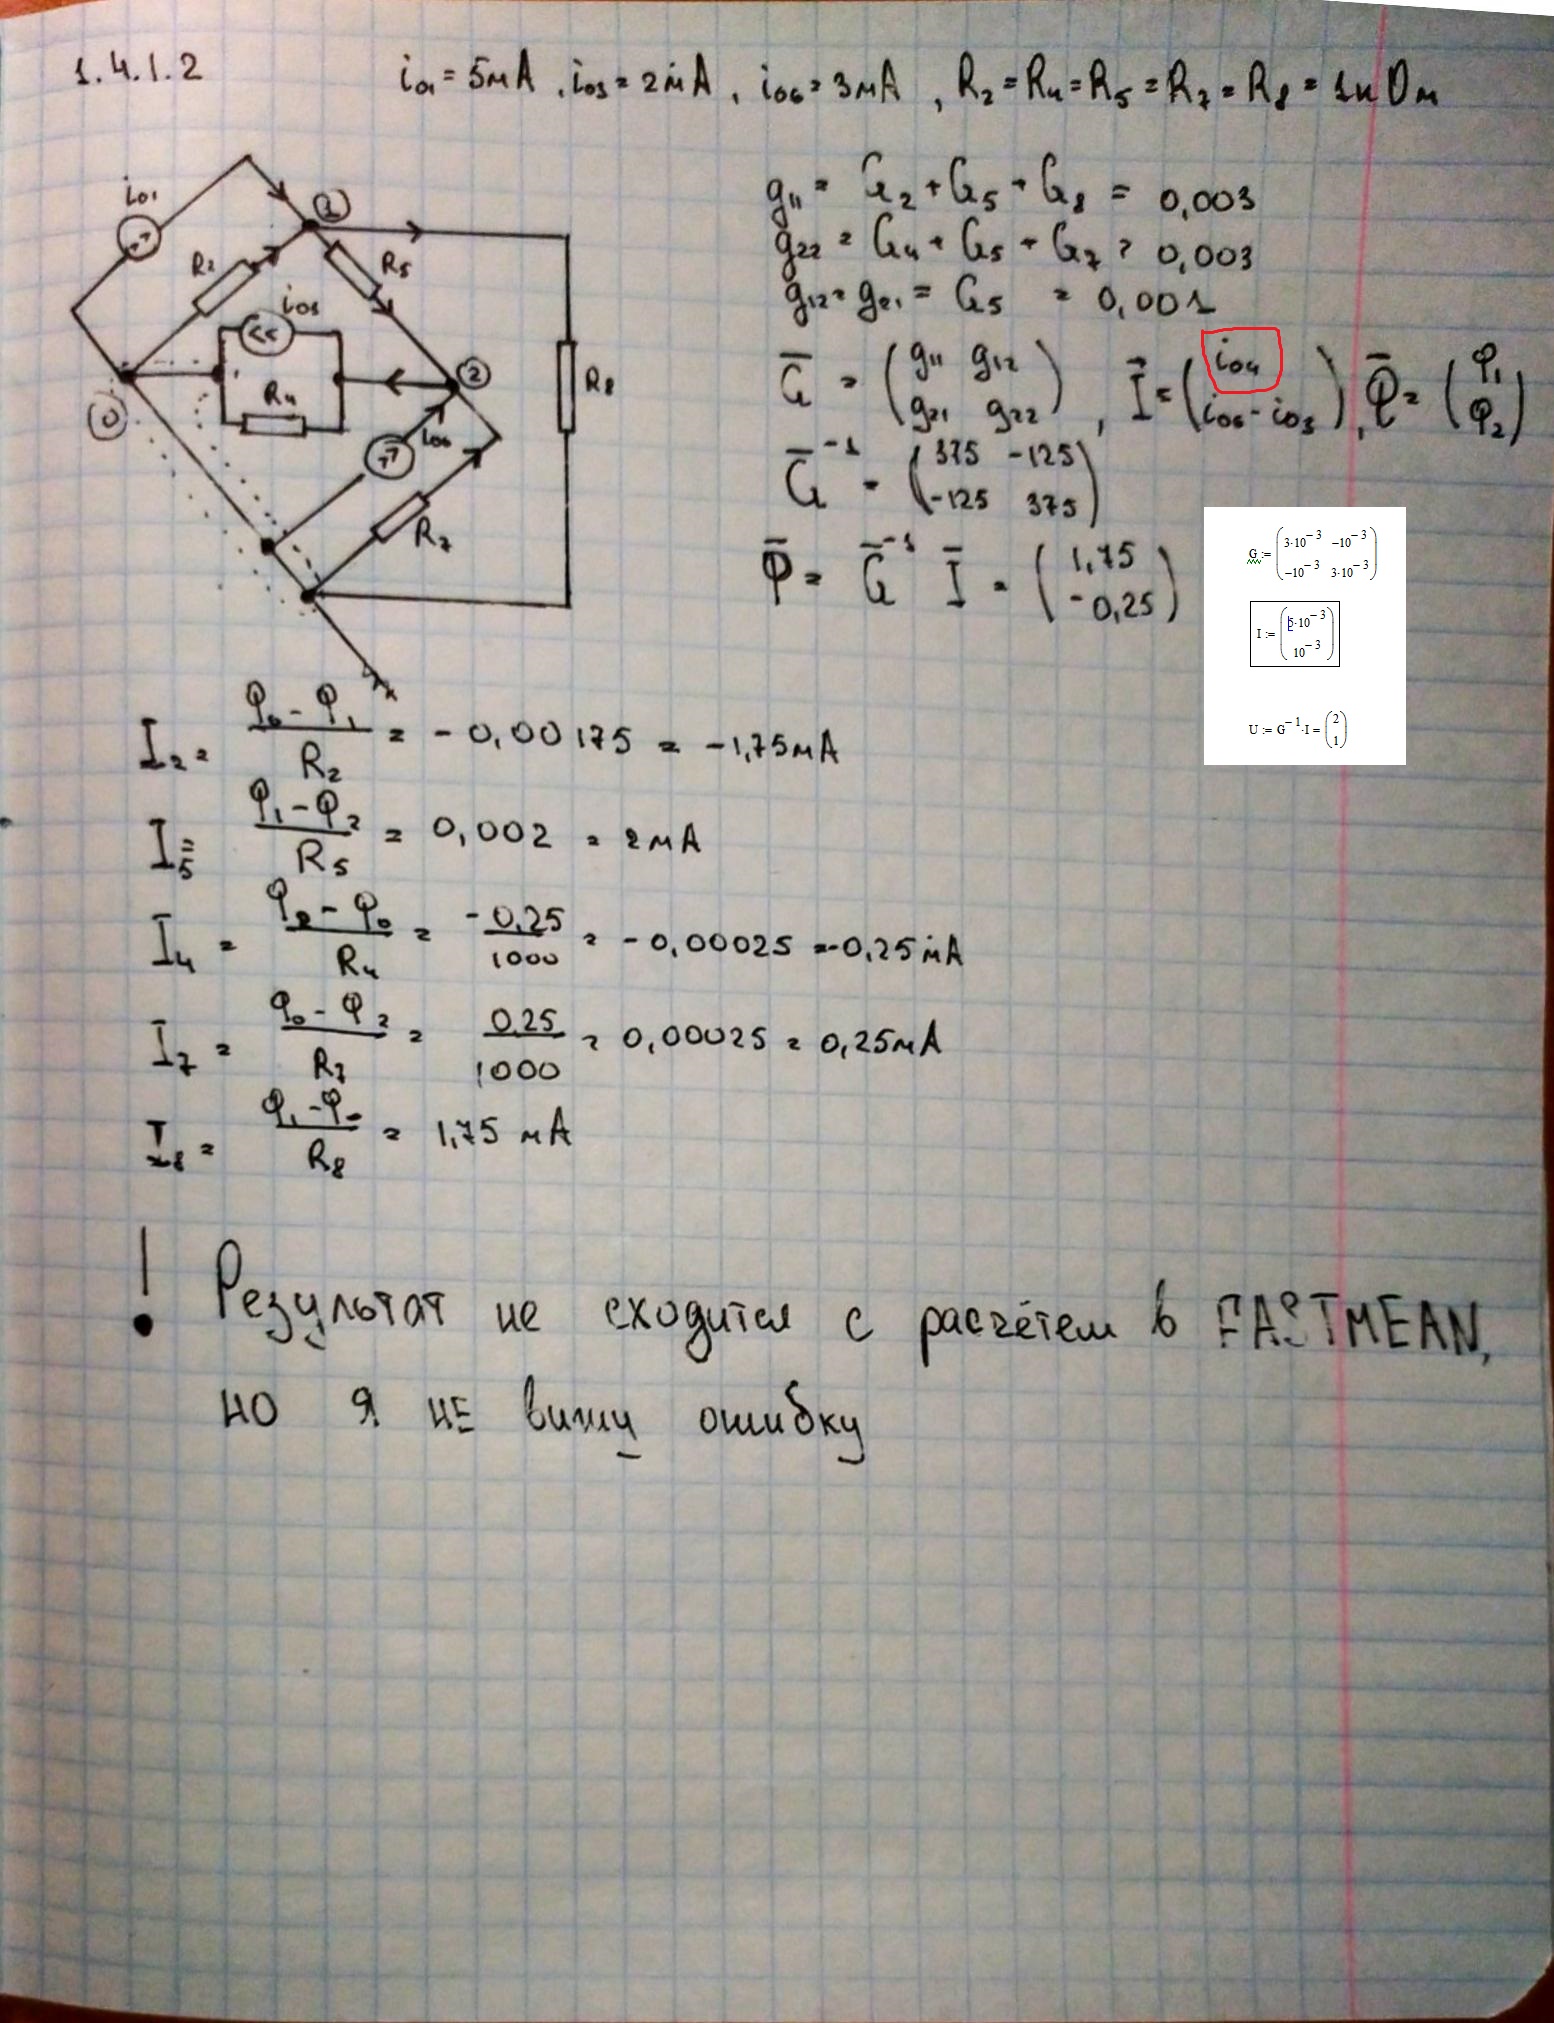 1.4.1.2 i01 = 5мА, i03 = 2мА, i06 = 3мА, R2 = R4 = R5 = R7 = R8 = 1кОм
i01
1
R2
R5
i03
2
R8
R4
0
i06
R7
g11 = G2 + G5 + G8 = 0,003
g22 = G4 + G5 + G7 = 0,003
g12 = g21 = G5 = 0,001
G = (g11 g12
g21 g22), I = (i04
i06 - i03), φ = (φ1
φ2)
G⁻¹ = (375 -125
-125 375)
φ = G⁻¹ I = (1,75
-0,25)
G := (3·10⁻³ -10⁻³
-10⁻³ 3·10⁻³)
I := (5·10⁻³
10⁻³)
U := G⁻¹·I = (2
1)
I2 = (φ0 - φ1) / R2 = -0,00175 = -1,75мА
I5 = (φ1 - φ2) / R5 = 0,002 = 2мА
I4 = (φ2 - φ0) / R4 = -0,25 / 1000 = -0,00025 = -0,25мА
I7 = (φ0 - φ2) / R7 = 0,25 / 1000 = 0,00025 = 0,25мА
I8 = (φ1 - φ0) / R8 = 1,75 мА
! Результат не сходится с расчётем в FASTMEAN,
но я не вижу ошибку